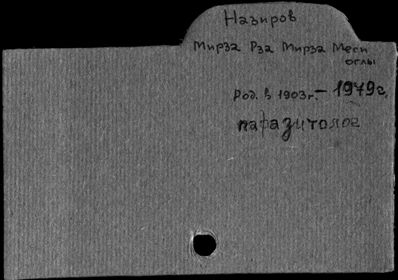 Назиров
Мирза Рза Мирза Меси
оглы
Род. в 1903г. – 1979г.
паразитолог